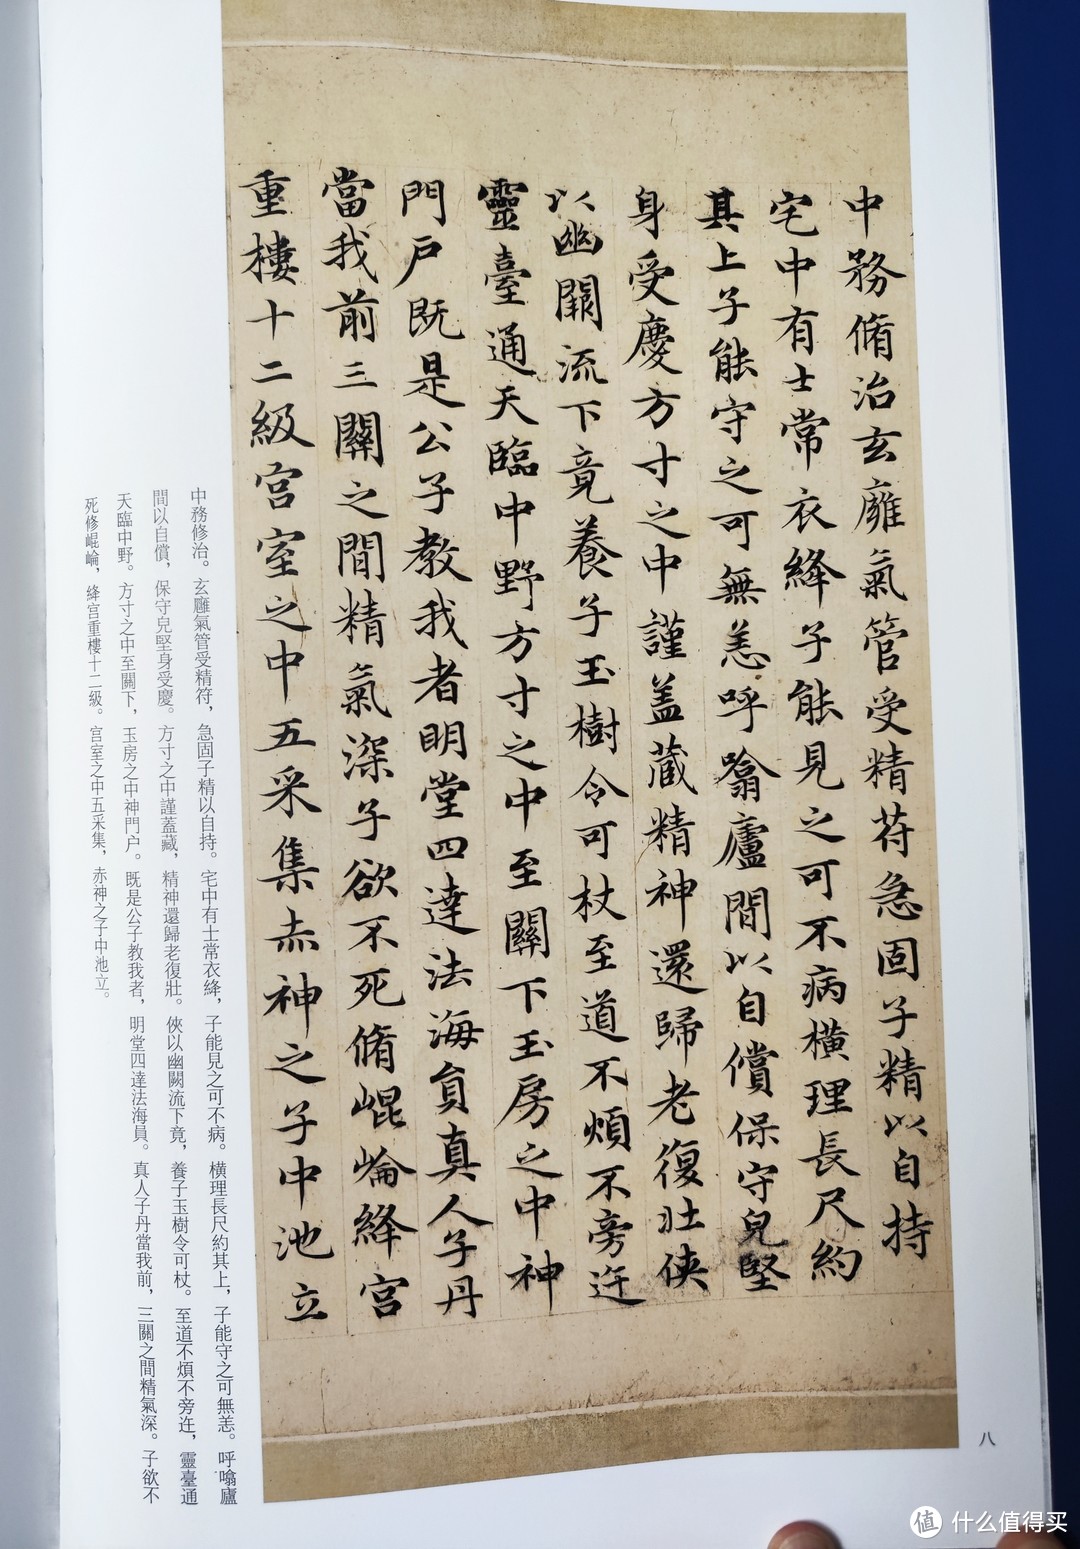 中務脩治玄廱氣管受精苻急固子精以自持
宅中有士常衣絳子能見之可不病橫理長尺約
其上子能守之可無恙呼噏廬間以自償保守皃堅
身受慶方寸之中謹盖藏精神還歸老復壯俠
以幽闕流下竟養子玉樹令可杖至道不煩不旁迕
靈臺通天臨中野方寸之中至關下玉房之中神
門户既是公子教我者明堂四達法海員真人子丹
當我前三關之間精氣深子欲不死脩崐崘絳宫
重樓十二級宫室之中五采集赤神之子中池立
中務修治。玄廱氣管受精符，急固子精以自持。宅中有士常衣絳，子能見之可不病。橫理長尺約其上，子能守之可無恙。呼噏廬
間以自償，保守皃堅身受慶。方寸之中謹蓋藏，精神還歸老復壯。俠以幽闕流下竟，養子玉樹令可杖。至道不煩不旁迕，靈臺通
天臨中野。方寸之中至關下，玉房之中神門户。既是公子教我者，明堂四達法海員。真人子丹當我前，三關之間精氣深。子欲不
死修崐崘，絳宫重樓十二級。宫室之中五采集，赤神之子中池立。
八
值 什么值得买